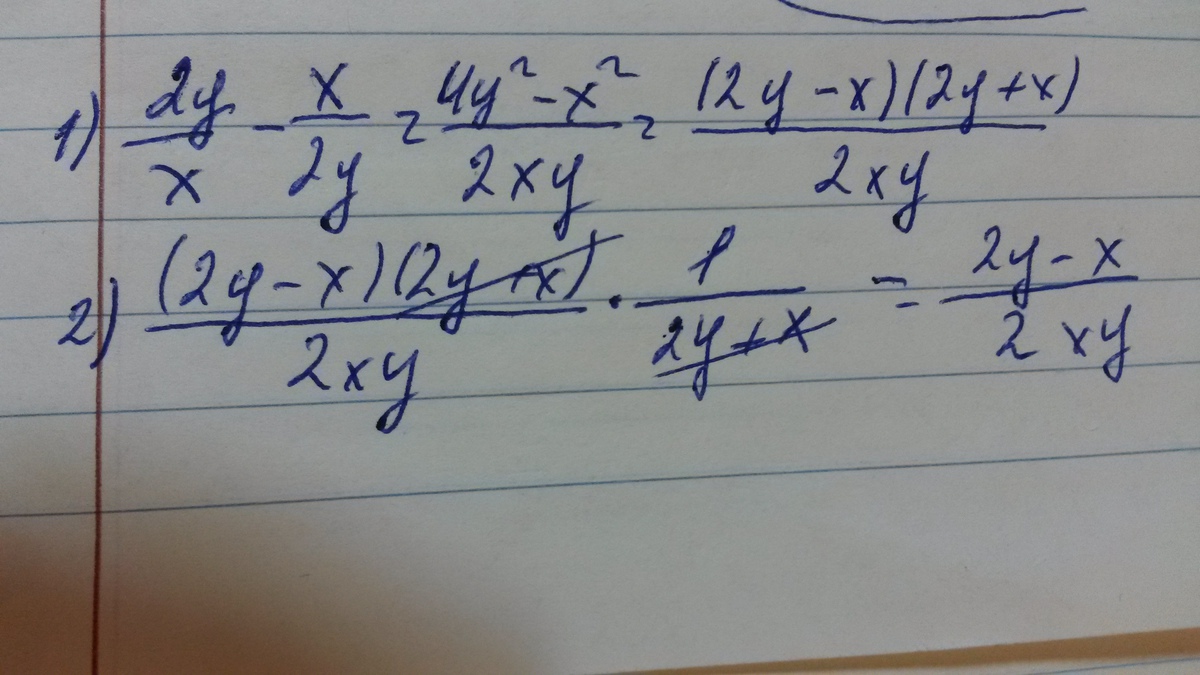 1) 2y/x - x/2y = 4y² - x²/2xy = (2y - x)(2y + x)/2xy
2) (2y - x)(2y + x)/2xy · 1/2y + x = 2y - x/2xy